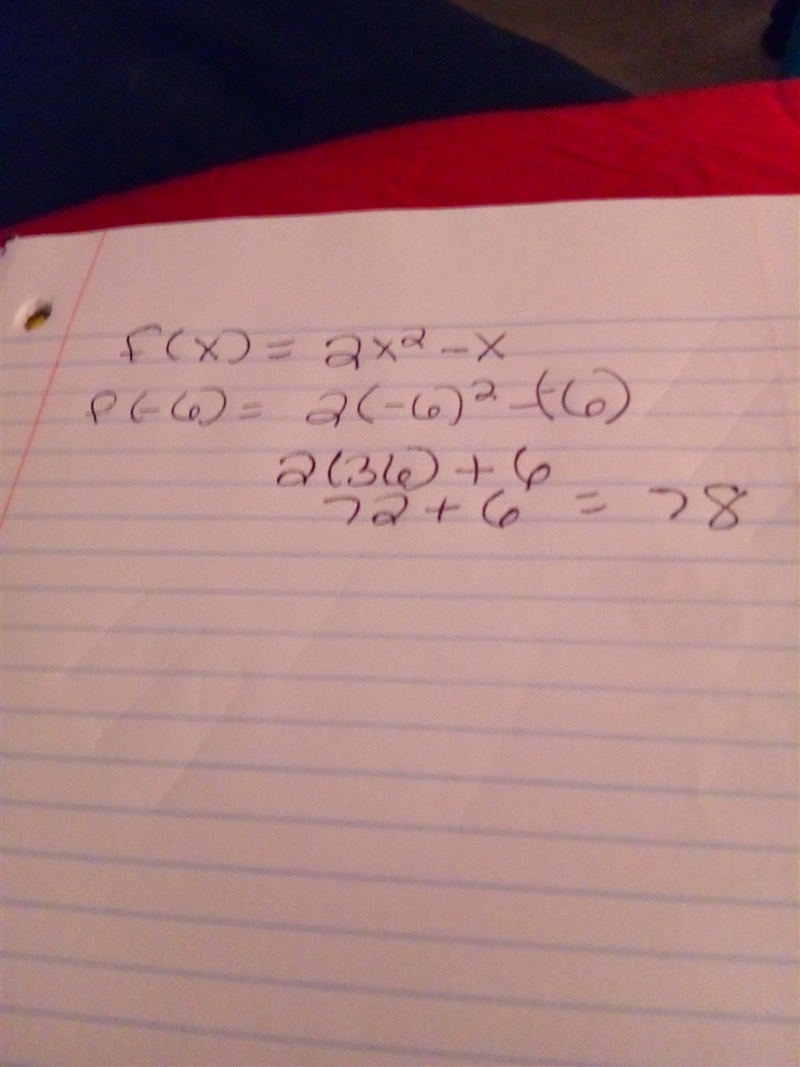 f(x) = 2x² - x
f(-6) = 2(-6)² -(-6)
2(36) + 6
72 + 6 = 78